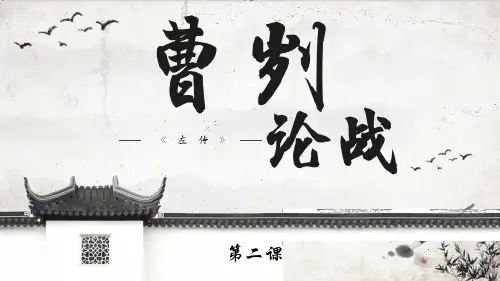 曹刿
论战
《左传》
第二课